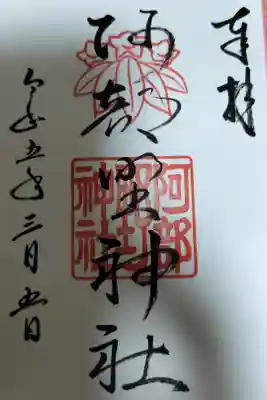 奉拝
阿部野神社
令和五年三月五日
阿部野神社